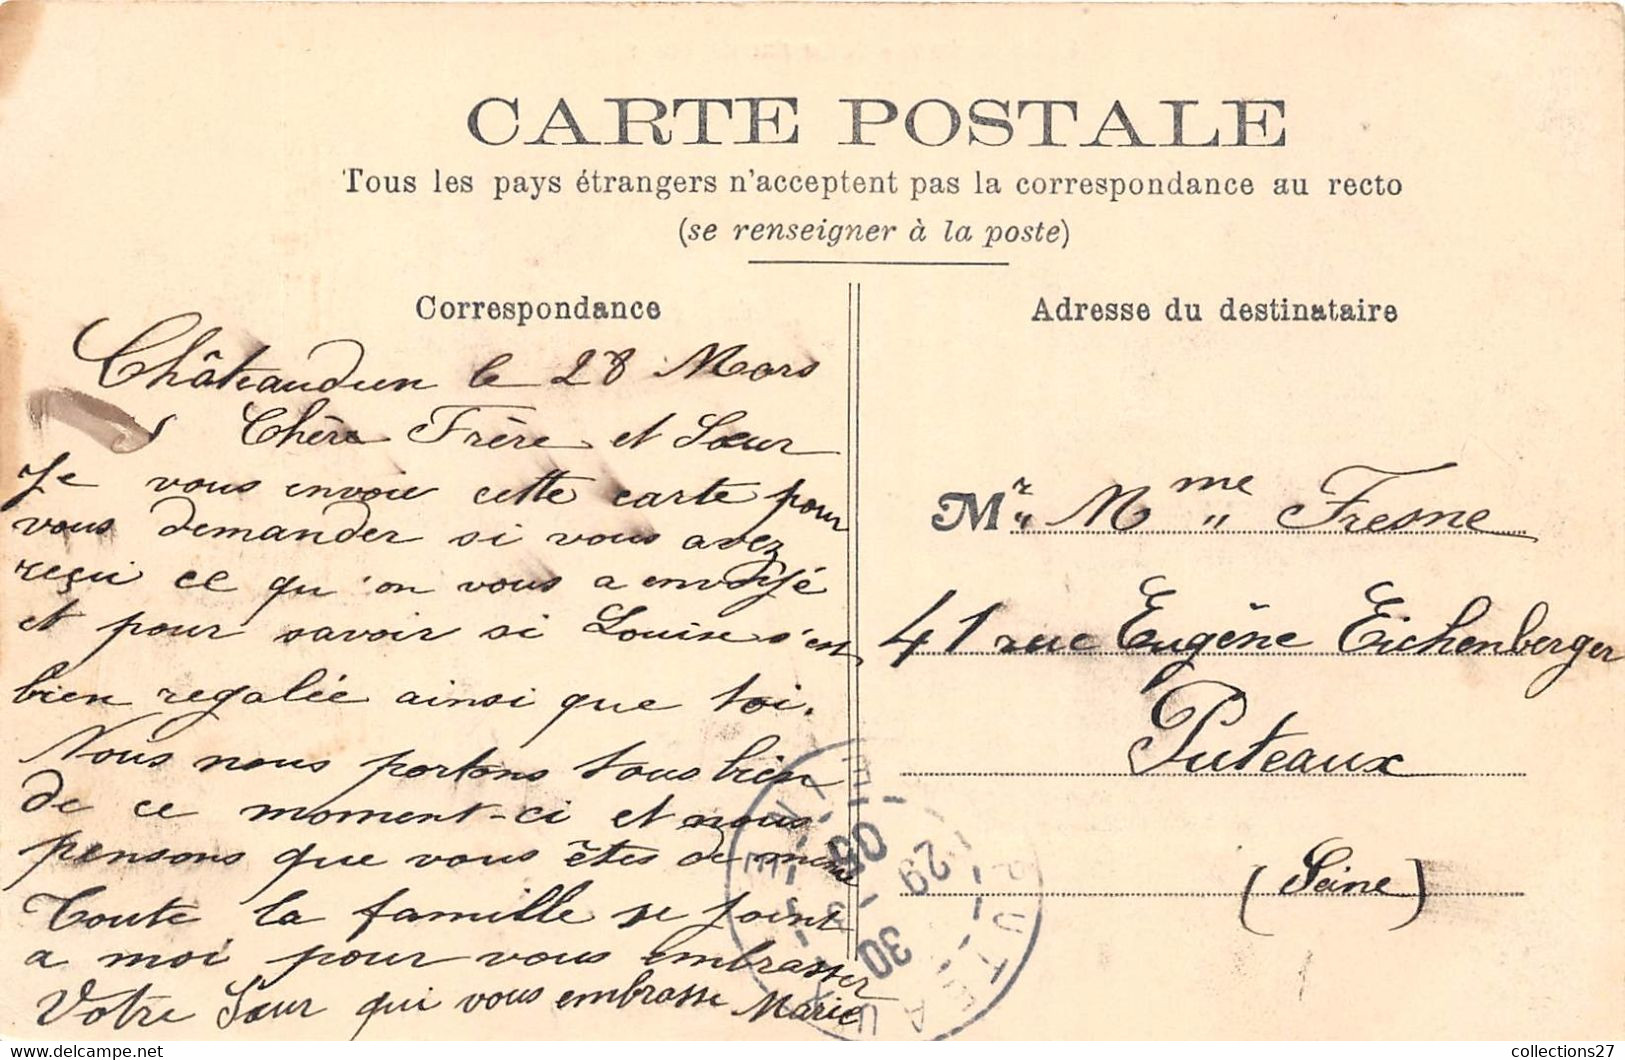 CARTE POSTALE
Tous les pays étrangers n'acceptent pas la correspondance au recto
(se renseigner à la poste)
Correspondance
Châteaudun le 28 Mars
Chère Frère et Sœur
Je vous envoie cette carte pour
vous demander si vous avez
reçu ce qu'on vous a envoyé
et pour savoir si Louise s'est
bien regalée ainsi que toi.
Nous nous portons tous bien
de ce moment-ci et nous
pensons que vous êtes de même
Toute la famille se joint
a moi pour vous embrasser
Votre Sœur qui vous embrasse Marie
Adresse du destinataire
Mr Mme Fresne
41 rue Eugène Eichenberger
Puteaux
(Seine)
PUTEAUX
SEINE
30
29 3
08
collections27